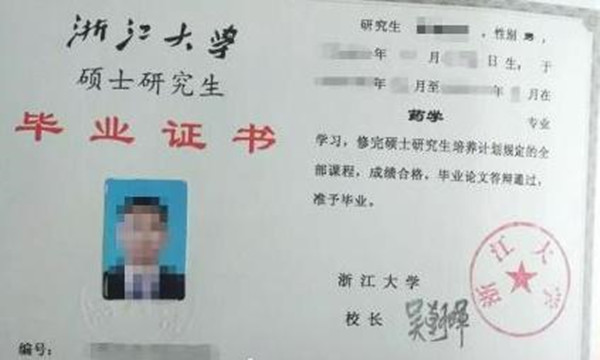 浙江大学
硕士研究生
毕业证书
编号:
研究生 ,性别 男,
年 月 日生,于
年 月至 年 月在
药学 专业
学习,修完硕士研究生培养计划规定的全
部课程,成绩合格,毕业论文答辩通过,
准予毕业。
浙江大学
校长
浙江大学